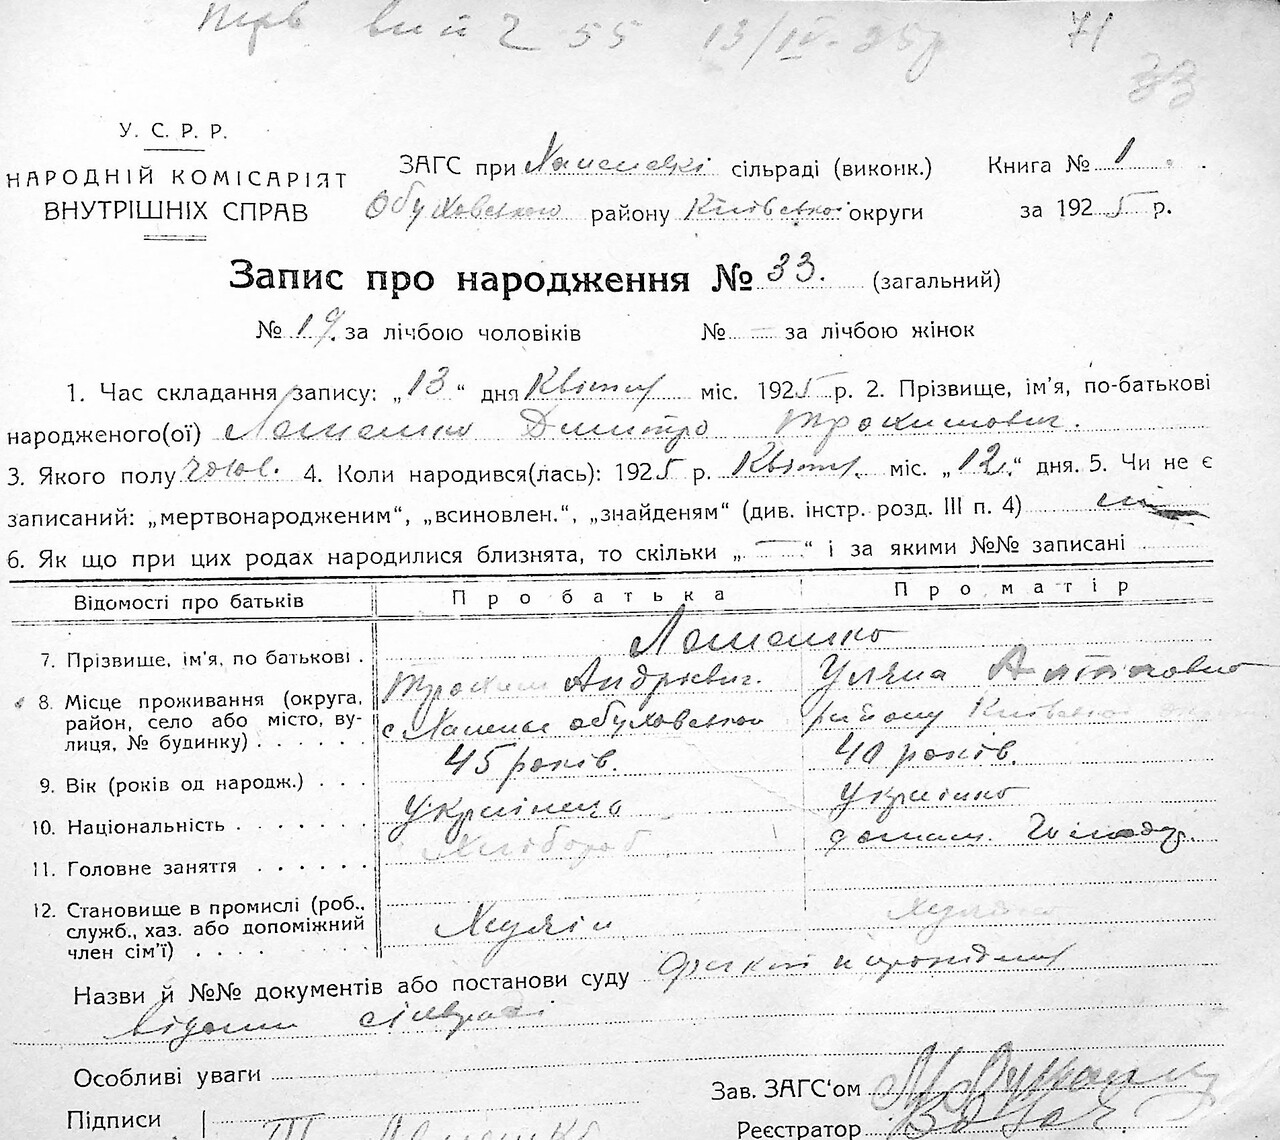 вий 2 55 13/IV-35р 71
33
У. С. Р. Р.
НАРОДНІЙ КОМІСАРІЯТ
ВНУТРІШНІХ СПРАВ
ЗАГС при сільраді (виконк.)
Обуховського району Київської округи
Книга № 1
за 1925 р.
Запис про народження № 33. (загальний)
№ 19. за лічбою чоловіків № — за лічбою жінок
1. Час складання запису: „13“ дня Квітня міс. 1925 р. 2. Прізвище, ім'я, по-батькові
народженого(ої) Лешенко Дмитро Трохимович.
3. Якого полу чолов. 4. Коли народився(лась): 1925 р. Квітня міс. „12.“ дня. 5. Чи не є
записаний: „мертвонародженим“, „всиновлен.“, „знайденям“ (див. інстр. розд. III п. 4) ні
6. Як що при цих родах народилися близнята, то скільки „—“ і за якими №№ записані
Відомості про батьків Про батька Про матір
7. Прізвише, ім'я, по батькові . Лешенко
Трохим Андрієвич. Уляна Антоновна
8. Місце проживання (округа, район, село або місто, вулиця, № будинку) . . . . . . с. Обуховського району Київської
9. Вік (років од народж.) . . . 45 років. 40 років.
10. Національність . . . . . . . Українець Українка
11. Головне заняття . . . . . . Хлібороб домаш. Господ.
12. Становище в промислі (роб., служб., хаз. або допоміжний член сім'ї) . . . .
Назви й №№ документів або постанови суду
відоми сільраді
Особливі уваги
Зав. ЗАГС'ом
Підписи
Реєстратор